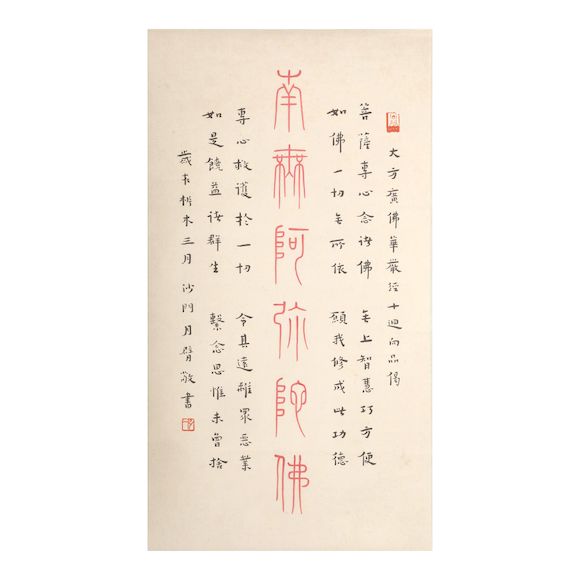 大方廣佛華嚴經十迴向品偈
菩薩專心念諸佛 无上智慧巧方便
如佛一切无所依 願我修成此功德
南無阿弥陀佛
專心救護於一切 令其遠離眾惡業
如是饒益諸群生 繫念思惟未曾捨
歲在析木三月 沙門月臂敬書